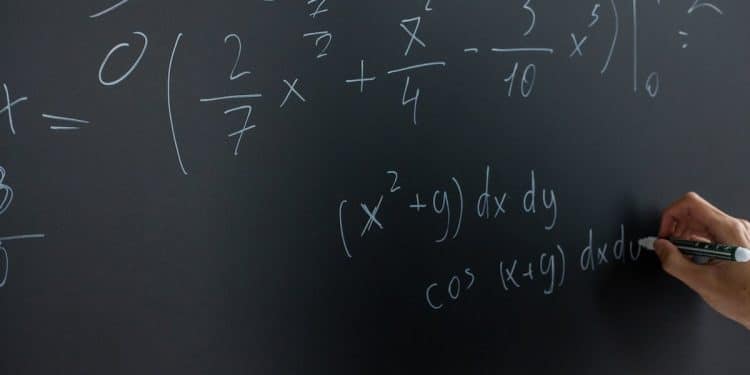 x = 0 ( 2/7 x^(7/2) + x^2/4 - 3/10 x^5 ) |_0 =
(x² + y) dx dy
cos (x + y) dx dy